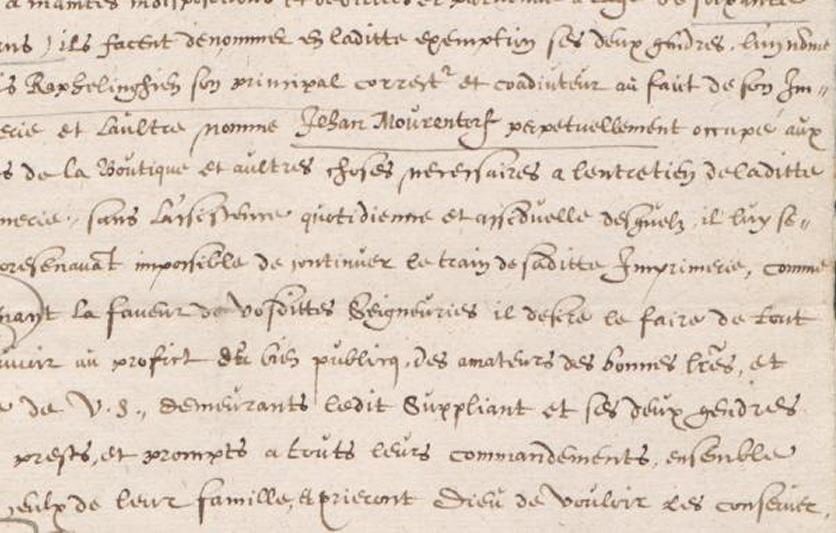 a maintes indispositions et
ans) ils facent denommer en laditte exemption ses deux gendres, l'un nõme
is Raphelinghien son principal correct^r et coadiuteur au faict de son Im„
erie et l'aultre nomme Jehan Mourentorf perpetuellement occupé aux
s de la Boutique et aultres choses necessaires a l'entretien de laditte
merie, sans l'assistence quotidienne et assiduelle desquelz, il luy se„
oresenavãt impossible de continuer le train de saditte Imprimerie, comme
nant la faveur de vosdittes Seigneuries il desire le faire de tout
uvoir au profict du bien publicq, des amateurs des bonnes lr̃es, et
e de V. S., demeurants ledit Suppliant et ses deux gendres
prests, et prompts a touts leurs commandements, ensemble
ceulx de leur famille, et prieront Dieu de vouloir les conserver,